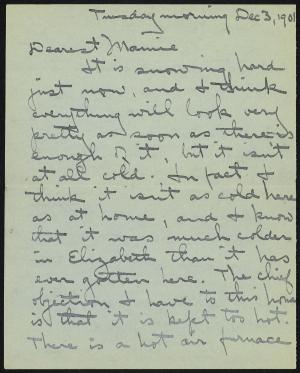 Tuesday morning Dec 3, 1901
Dearest Mamie
It is snowing hard
just now, and I think
everything will look very
pretty as soon as there is
enough of it, but it isn't
at all cold. In fact I
think it isn't as cold here
as at home, and I know
that it was much colder
in Elizabeth than it has
ever gotten here. The chief
objection I have to this house
is that it is kept too hot.
There is a hot air furnace